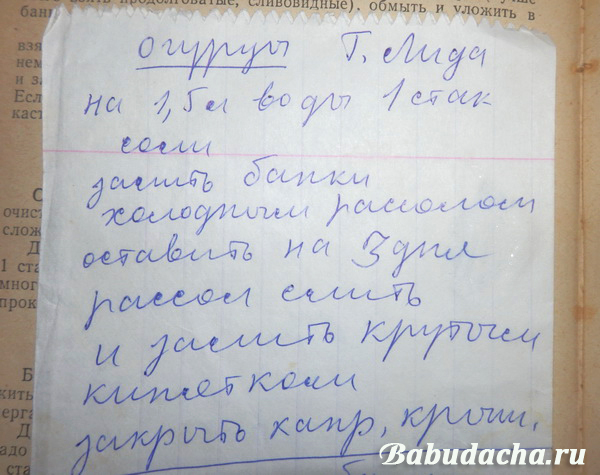 продолговатые, сливовидные). обмыть и уложить в
бан
огурцы Т. Лида
на 1,5 л воды 1 стак
соли
залить банки
холодным рассолом
оставить на 3 дня
рассол слить
и залить крутым
кипятком
закрыть капр. крыш.
взя
нем
и за
Если
каст
очист
слож
Д
1 ста
мног
прок
Babudacha.ru